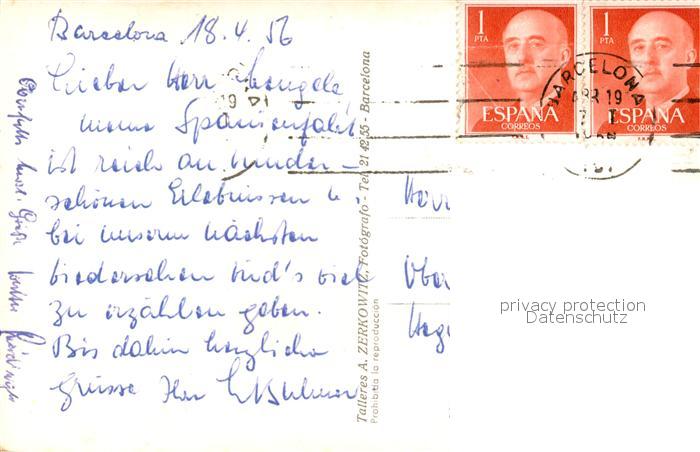 Barcelona 18.4.56
Lieber Herr
meine Spanienfahrt
ist reich an wunder-
schönen Erlebnissen u.
bei unserm nächsten
Wiedersehen wird's viel
zu erzählen geben.
Bis dahin herzliche
Grüsse Ihr
1
PTA
ESPAÑA
CORREOS
1
PTA
ESPAÑA
CORREOS
BARCELONA
APR 19
Talleres A. ZERKOWITZ, Fotógrafo - Tel. 21 42 55 - Barcelona
Prohibida la reproducción
Herr
Ober
Hage
privacy protection
Datenschutz